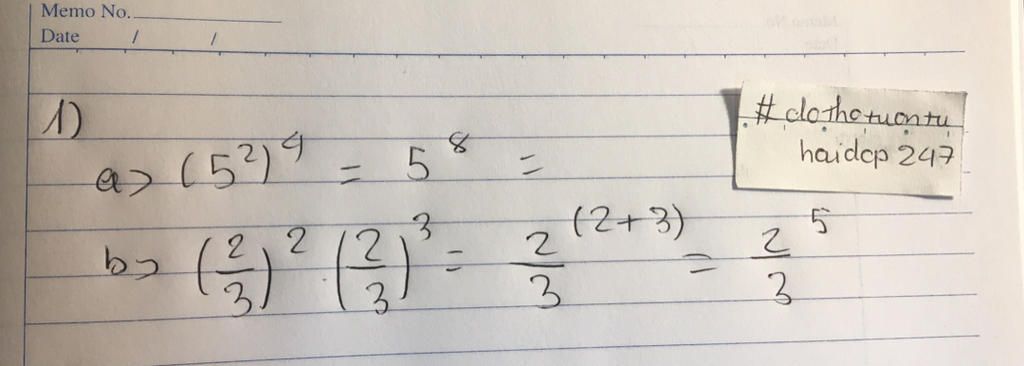 Memo No.
Date / /
1)
a> (5²)⁴ = 5⁸ =
b> (2/3)² . (2/3)³ = 2/3 ⁽²⁺³⁾ = 2/3 ⁵
# clothotuontu
haidcp 247